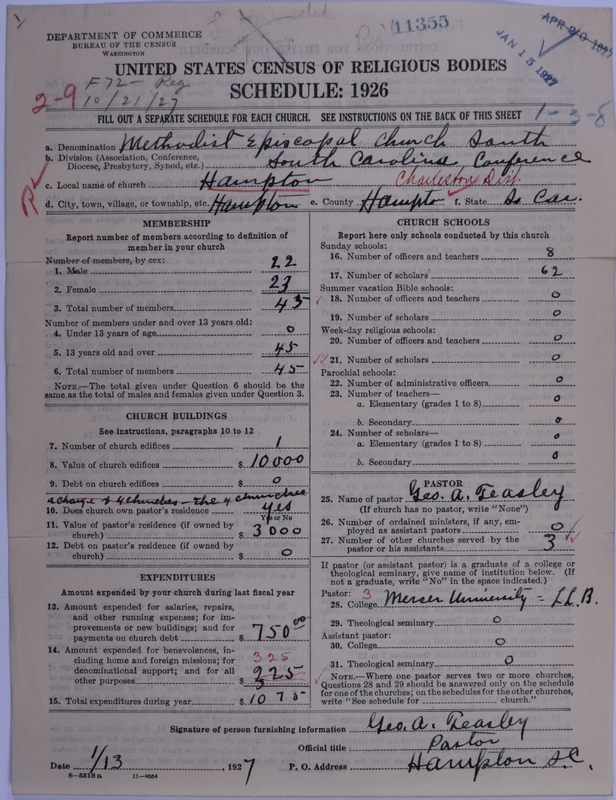 11355
APR 20 1927
JAN 15 1927
DEPARTMENT OF COMMERCE
BUREAU OF THE CENSUS
WASHINGTON
F72- Reg
10/21/27
2-9
UNITED STATES CENSUS OF RELIGIOUS BODIES
SCHEDULE: 1926
FILL OUT A SEPARATE SCHEDULE FOR EACH CHURCH. SEE INSTRUCTIONS ON THE BACK OF THIS SHEET
1-3-8
a. Denomination Methodist Episcopal Church South
b. Division (Association, Conference,
Diocese, Presbytery, Synod, etc.) South Carolina Conference
c. Local name of church Hampton Charleston Dist
d. City, town, village, or township, etc. Hampton e. County Hampton f. State So Car.
MEMBERSHIP
Report number of members according to definition of
member in your church
Number of members, by sex:
1. Male 22
2. Female 23
3. Total number of members 45
Number of members under and over 13 years old:
4. Under 13 years of age 0
5. 13 years old and over 45
6. Total number of members 45
NOTE.—The total given under Question 6 should be the
same as the total of males and females given under Question 3.
CHURCH BUILDINGS
See instructions, paragraphs 10 to 12
7. Number of church edifices 1
8. Value of church edifices $ 10000
9. Debt on church edifices $ 0
a charge of 4 churches - the 4 churches
10. Does church own pastor's residence yes
Yes or No
11. Value of pastor's residence (if owned by
church) $ 3000
12. Debt on pastor's residence (if owned by
church) $ 0
EXPENDITURES
Amount expended by your church during last fiscal year
13. Amount expended for salaries, repairs,
and other running expenses; for im-
provements or new buildings; and for
payments on church debt $ 750.00
14. Amount expended for benevolences, in-
cluding home and foreign missions; for 325
denominational support; and for all
other purposes $ 225
15. Total expenditures during year $ 1075
CHURCH SCHOOLS
Report here only schools conducted by this church
Sunday schools:
16. Number of officers and teachers 8
17. Number of scholars 62
Summer vacation Bible schools:
18. Number of officers and teachers 0
19. Number of scholars 0
Week-day religious schools:
20. Number of officers and teachers 0
21. Number of scholars 0
Parochial schools:
22. Number of administrative officers 0
23. Number of teachers—
a. Elementary (grades 1 to 8) 0
b. Secondary 0
24. Number of scholars—
a. Elementary (grades 1 to 8) 0
b. Secondary 0
PASTOR
25. Name of pastor Geo. A. Teasley
(If church has no pastor, write "None")
26. Number of ordained ministers, if any, em-
ployed as assistant pastors 0
27. Number of other churches served by the
pastor or his assistants 3
If pastor (or assistant pastor) is a graduate of a college or
theological seminary, give name of institution below. (If
not a graduate, write "No" in the space indicated.)
Pastor: 3
28. College Mercer University = LL.B.
29. Theological seminary 0
Assistant pastor:
30. College 0
31. Theological seminary 0
NOTE.—Where one pastor serves two or more churches,
Questions 28 and 29 should be answered only on the schedule
for one of the churches; on the schedules for the other churches,
write "See schedule for church."
Signature of person furnishing information Geo. A. Teasley
Official title Pastor
Date 1/13, 1927 P. O. Address Hampton S.C.
8—5818a 11—9054